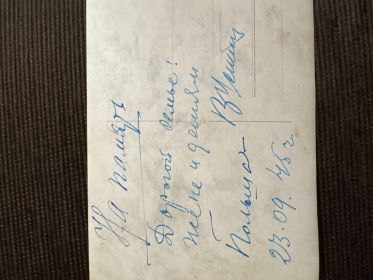 На память
Дорогой семье!
жене и детям
Польша
23.09.45 г.